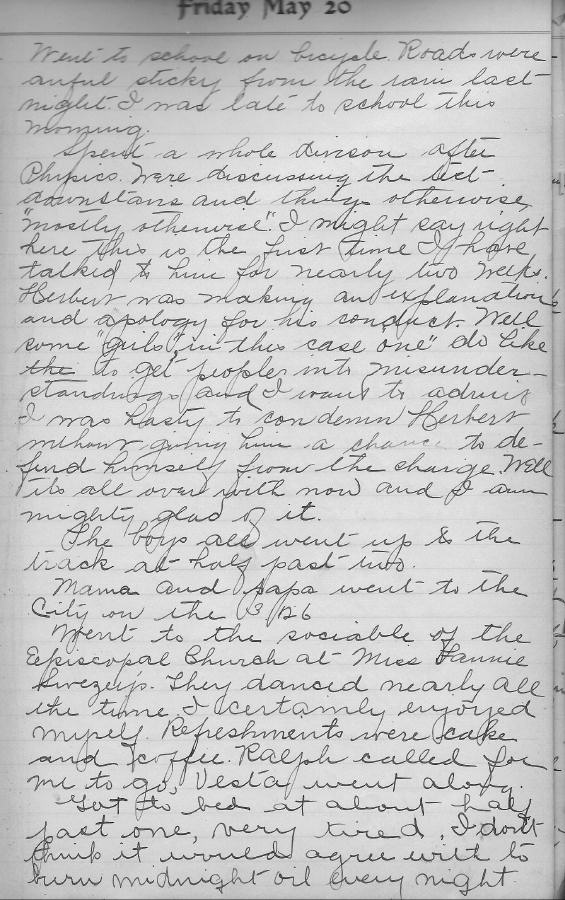 Friday May 20
Went to school on bicycle. Roads were
awful sticky from the rain last
night I was late to school this
morning.
Spent a whole divison after
Physics. Were discussing the
downstairs and things otherwise
"mostly otherwise". I might say right
here this is the first time I have
talked to him for nearly two weeks.
Herbert was making an explanation
and apology for his conduct. Well
some "girls", in this case one" do like
the to get peoples into misunder-
standings and I want to admit
I was hasty to condemn Herbert
without giving him a chance to de-
fend himself from the charge. Well
its all over with now and I am
mighty glad of it.
The boys all went up to the
track at half past two.
Mama and papa went to the
City on the 3 26
Went to the sociable of the
Episcopal Church at Miss Fannie
Swezey's. They danced nearly all
the time I certainly enjoyed
myself. Refreshments were cake
and coffee. Ralph called for
me to go, Vesta went along.
Got to bed at about half
past one, very tired, I don't
think it would agree with to
burn midnight oil every night